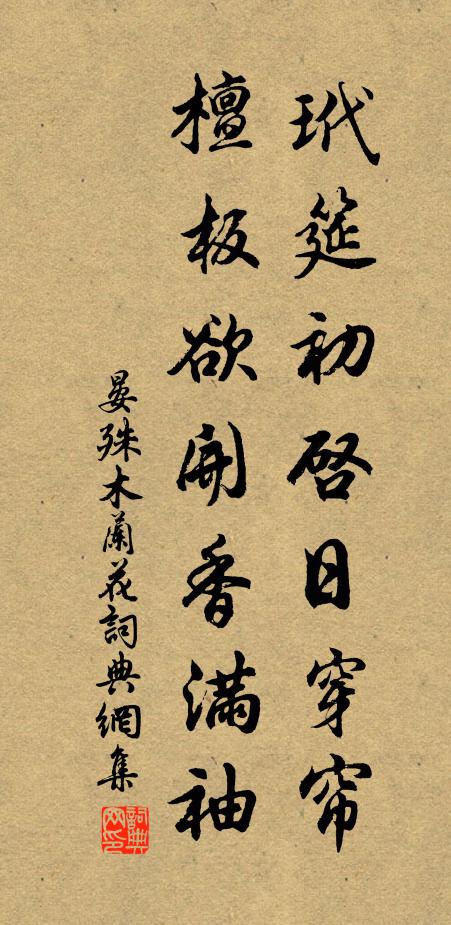 玳筵初启日穿帘
檀板欲開香满袖
晏殊木蘭花詞典網集
詞典網印